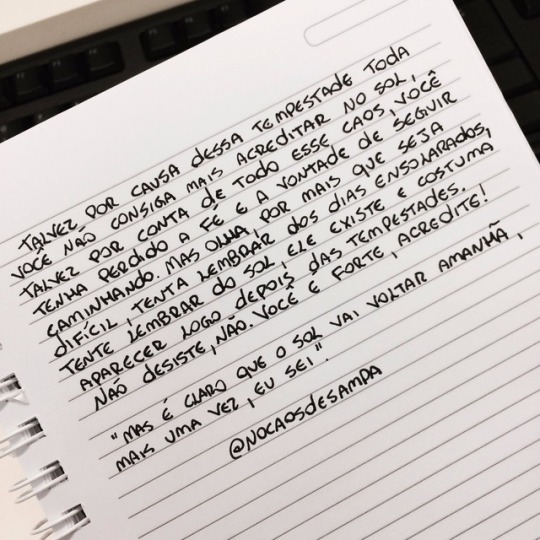 TALVEZ POR CAUSA DESSA TEMPESTADE TODA
VOCÊ NÃO CONSIGA MAIS ACREDITAR NO SOL,
TALVEZ POR CONTA DE TODO ESSE CAOS, VOCÊ
TENHA PERDIDO A FÉ E A VONTADE DE SEGUIR
CAMINHANDO. MAS OLHA, POR MAIS QUE SEJA
DIFÍCIL, TENTA LEMBRAR DOS DIAS ENSOLARADOS,
TENTE LEMBRAR DO SOL, ELE EXISTE E COSTUMA
APARECER LOGO DEPOIS DAS TEMPESTADES.
NÃO DESISTE, NÃO. VOCÊ É FORTE, ACREDITE!
"MAS É CLARO QUE O SOL VAI VOLTAR AMANHÃ,
MAIS UMA VEZ, EU SEI".
@NOCAOSDESAMPA